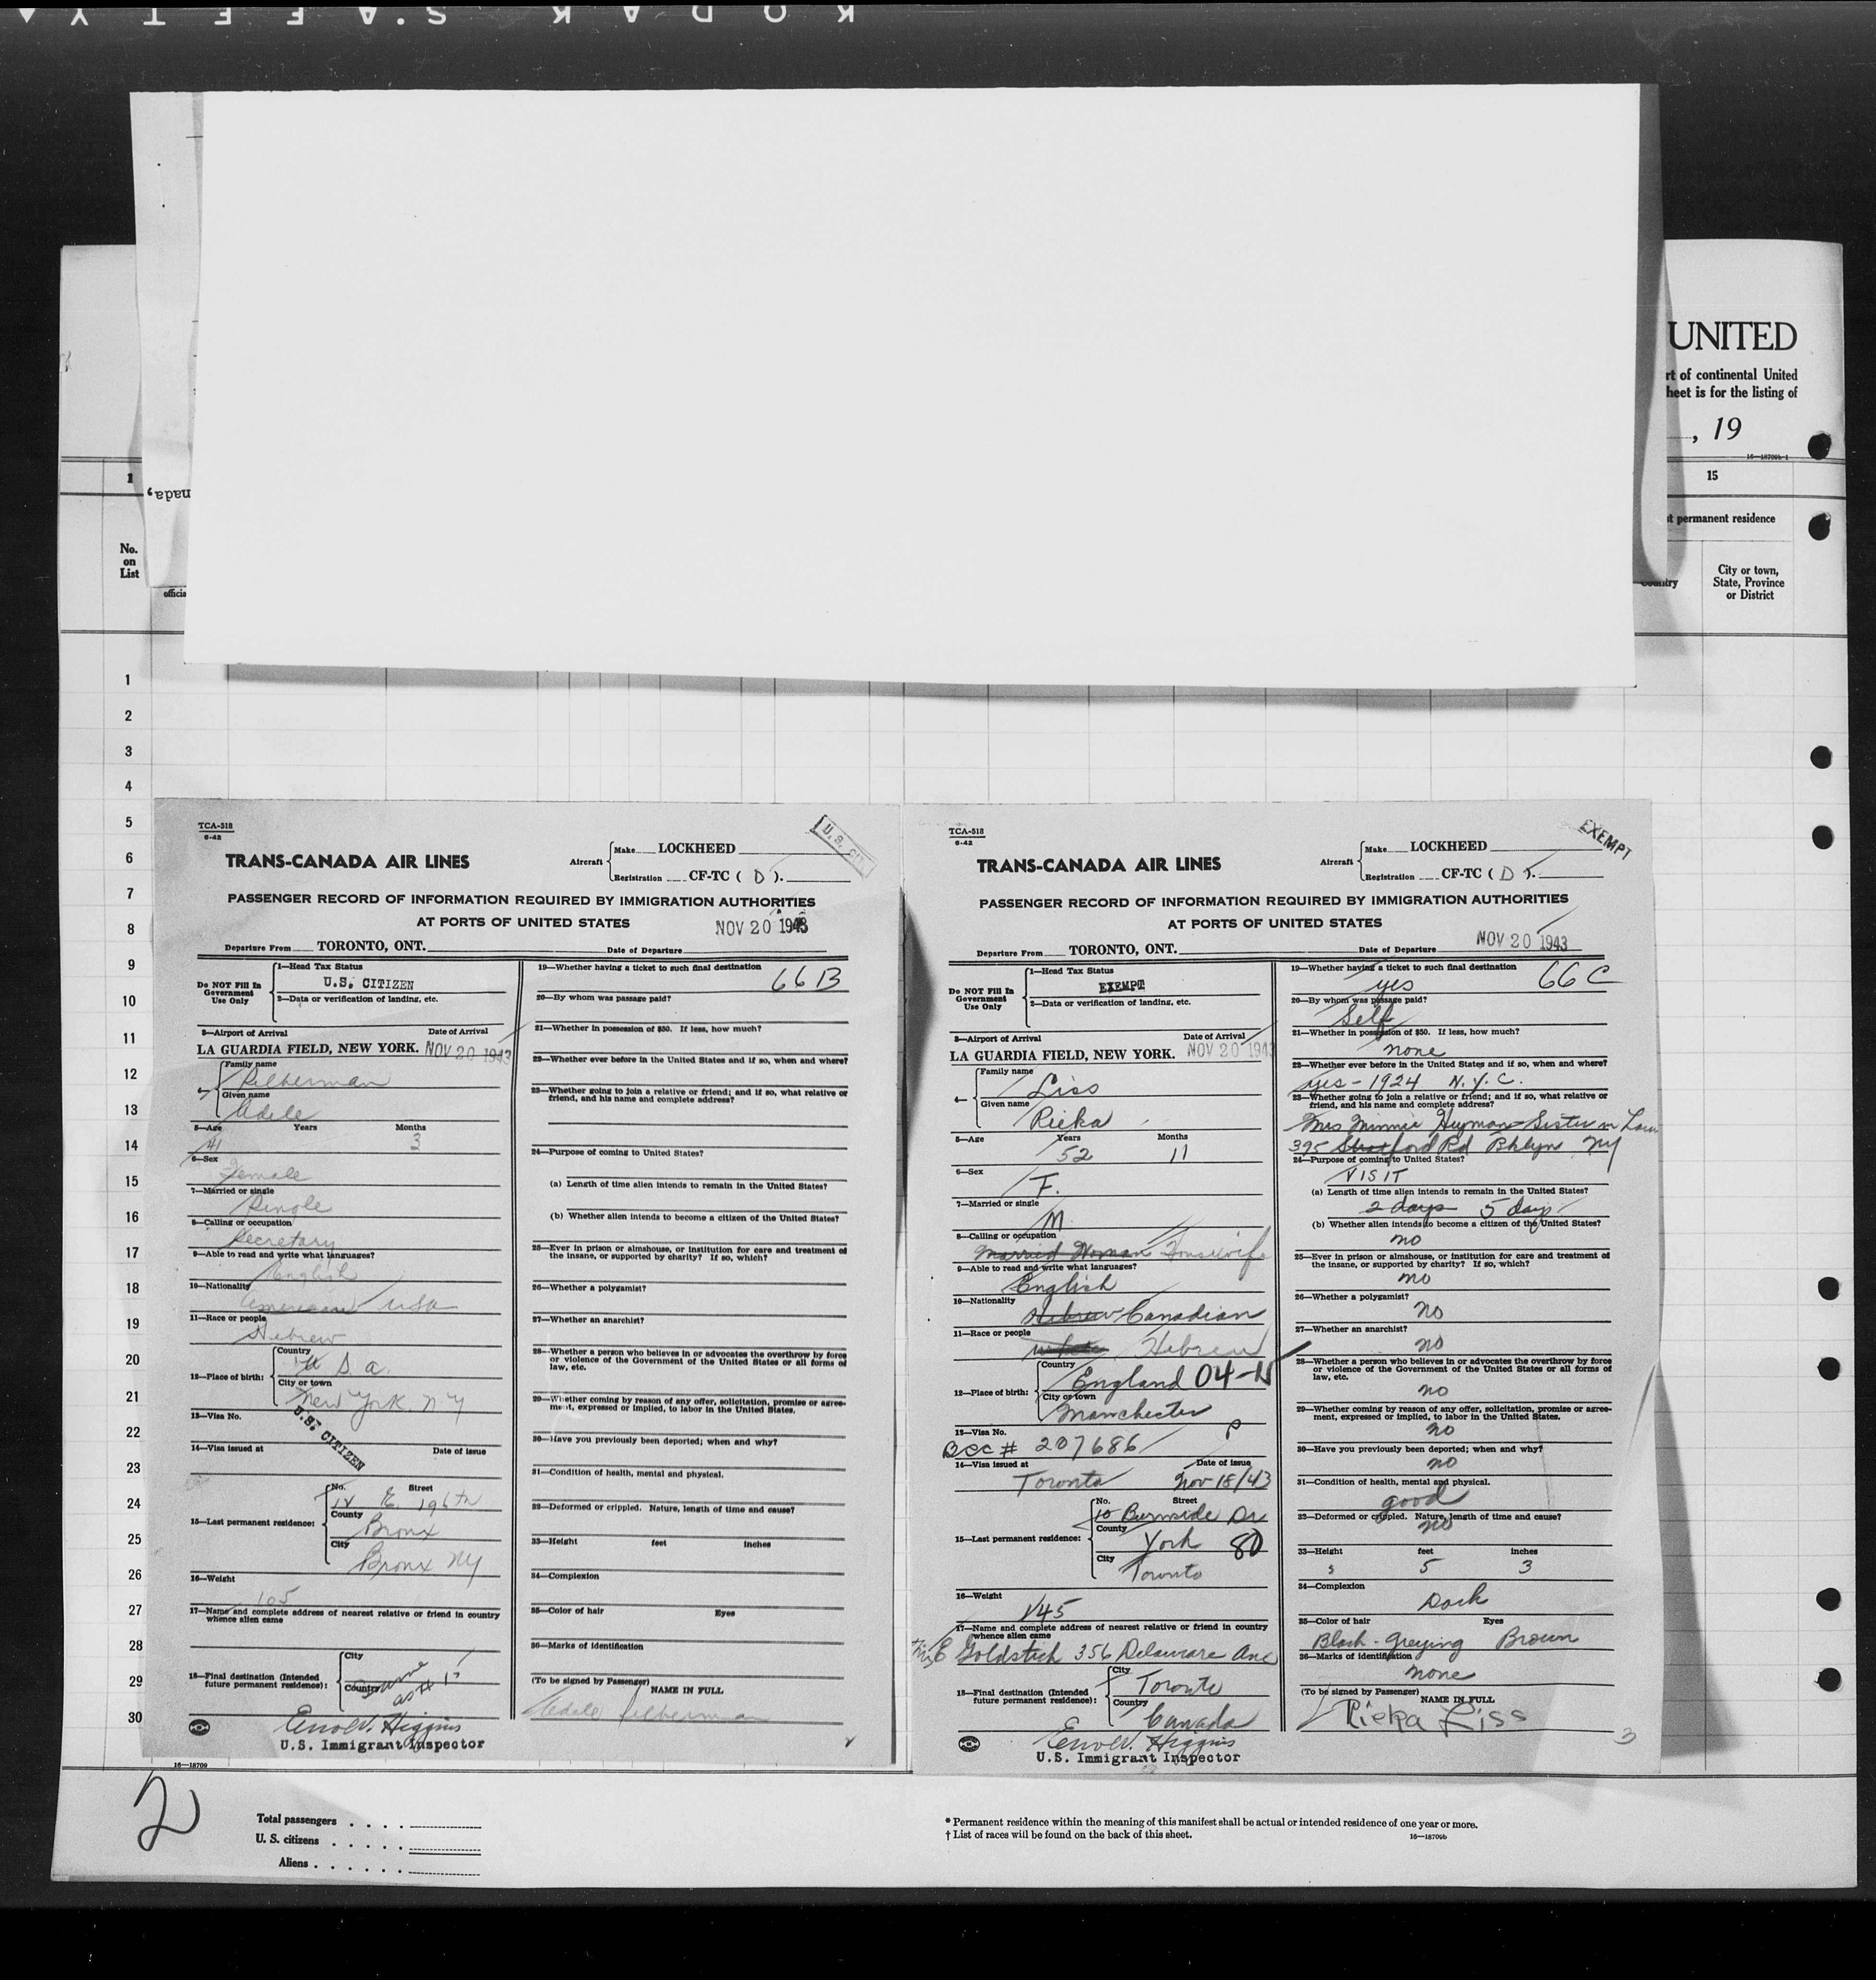 KODAK SAFETY
UNITED
rt of continental United
heet is for the listing of
, 19
16—18709b-1
1
nada,
15
t permanent residence
No.
on
List
officia
City or town,
State, Province
or District
1
2
3
4
5
6
7
8
9
10
11
12
13
14
15
16
17
18
19
20
21
22
23
24
25
26
27
28
29
30
TCA-518
6-42
TRANS-CANADA AIR LINES
Aircraft
Make LOCKHEED
Registration CF-TC ( D ).
U.S. CIT
PASSENGER RECORD OF INFORMATION REQUIRED BY IMMIGRATION AUTHORITIES
AT PORTS OF UNITED STATES
NOV 20 1943
Departure From TORONTO, ONT. Date of Departure
Do NOT Fill In Government Use Only
1—Head Tax Status
U.S. CITIZEN
2—Data or verification of landing, etc.
3—Airport of Arrival Date of Arrival
LA GUARDIA FIELD, NEW YORK. NOV 20 1943
4—
Family name
Silberman
Given name
Adele
5—Age Years Months
41 3
6—Sex
Female
7—Married or single
Single
8—Calling or occupation
Secretary
9—Able to read and write what languages?
English
10—Nationality
American USA
11—Race or people
Hebrew
12—Place of birth:
Country
U S A.
City or town
New York. NY
13—Visa No.
U.S. CITIZEN
14—Visa issued at Date of issue
15—Last permanent residence:
No. Street
E. 196th
County
Bronx
City
Bronx NY
16—Weight
105
17—Name and complete address of nearest relative or friend in country
whence alien came
18—Final destination (Intended
future permanent residence):
City
Country
Same
as # 15
Errol V. Higgins
U.S. Immigrant Inspector
19—Whether having a ticket to such final destination
66B
20—By whom was passage paid?
21—Whether in possession of $50. If less, how much?
22—Whether ever before in the United States and if so, when and where?
23—Whether going to join a relative or friend; and if so, what relative or
friend, and his name and complete address?
24—Purpose of coming to United States?
(a) Length of time alien intends to remain in the United States?
(b) Whether alien intends to become a citizen of the United States?
25—Ever in prison or almshouse, or institution for care and treatment of
the insane, or supported by charity? If so, which?
26—Whether a polygamist?
27—Whether an anarchist?
28—Whether a person who believes in or advocates the overthrow by force
or violence of the Government of the United States or all forms of
law, etc.
29—Whether coming by reason of any offer, solicitation, promise or agree-
ment, expressed or implied, to labor in the United States.
30—Have you previously been deported; when and why?
31—Condition of health, mental and physical.
32—Deformed or crippled. Nature, length of time and cause?
33—Height feet inches
34—Complexion
35—Color of hair Eyes
36—Marks of identification
(To be signed by Passenger)
NAME IN FULL
Adele Silberman
TCA-518
6-42
TRANS-CANADA AIR LINES
Aircraft
Make LOCKHEED
Registration CF-TC ( D ).
EXEMPT
PASSENGER RECORD OF INFORMATION REQUIRED BY IMMIGRATION AUTHORITIES
AT PORTS OF UNITED STATES
NOV 20 1943
Departure From TORONTO, ONT. Date of Departure
Do NOT Fill In Government Use Only
1—Head Tax Status
EXEMPT
2—Data or verification of landing, etc.
3—Airport of Arrival Date of Arrival
LA GUARDIA FIELD, NEW YORK. NOV 20 1943
4—
Family name
Liss
Given name
Rieka
5—Age Years Months
52 11
6—Sex
F.
7—Married or single
M
8—Calling or occupation
Married Woman Housewife
9—Able to read and write what languages?
English
10—Nationality
Hebrew Canadian
11—Race or people
white Hebrew
12—Place of birth:
Country
England 04-N
City or town
Manchester
13—Visa No.
BCC # 207686
14—Visa issued at Date of issue
Toronto Nov 18/43
15—Last permanent residence:
No. Street
10 Burnside Dr
County
York 80
City
Toronto
16—Weight
145
17—Name and complete address of nearest relative or friend in country
whence alien came
Mrs E Goldstich 356 Delaware Ave
18—Final destination (Intended
future permanent residence):
City
Toronto
Country
Canada
Errol V. Higgins
U.S. Immigrant Inspector
19—Whether having a ticket to such final destination
yes 66C
20—By whom was passage paid?
Self
21—Whether in possession of $50. If less, how much?
none
22—Whether ever before in the United States and if so, when and where?
yes - 1924 N.Y.C.
23—Whether going to join a relative or friend; and if so, what relative or
friend, and his name and complete address?
Mrs Minnie Hyman Sister in Law
395 Stratford Rd Bklyn NY
24—Purpose of coming to United States?
VISIT
(a) Length of time alien intends to remain in the United States?
2 days 5 days
(b) Whether alien intends to become a citizen of the United States?
no
25—Ever in prison or almshouse, or institution for care and treatment of
the insane, or supported by charity? If so, which?
no
26—Whether a polygamist?
no
27—Whether an anarchist?
no
28—Whether a person who believes in or advocates the overthrow by force
or violence of the Government of the United States or all forms of
law, etc.
no
29—Whether coming by reason of any offer, solicitation, promise or agree-
ment, expressed or implied, to labor in the United States.
no
30—Have you previously been deported; when and why?
no
31—Condition of health, mental and physical.
good
32—Deformed or crippled. Nature, length of time and cause?
no
33—Height feet inches
5 3
34—Complexion
Dark
35—Color of hair Eyes
Black - Greying Brown
36—Marks of identification
none
(To be signed by Passenger)
NAME IN FULL
Rieka Liss
3
16—18709
2
Total passengers
U. S. citizens
Aliens
* Permanent residence within the meaning of this manifest shall be actual or intended residence of one year or more.
† List of races will be found on the back of this sheet.
16—18709b